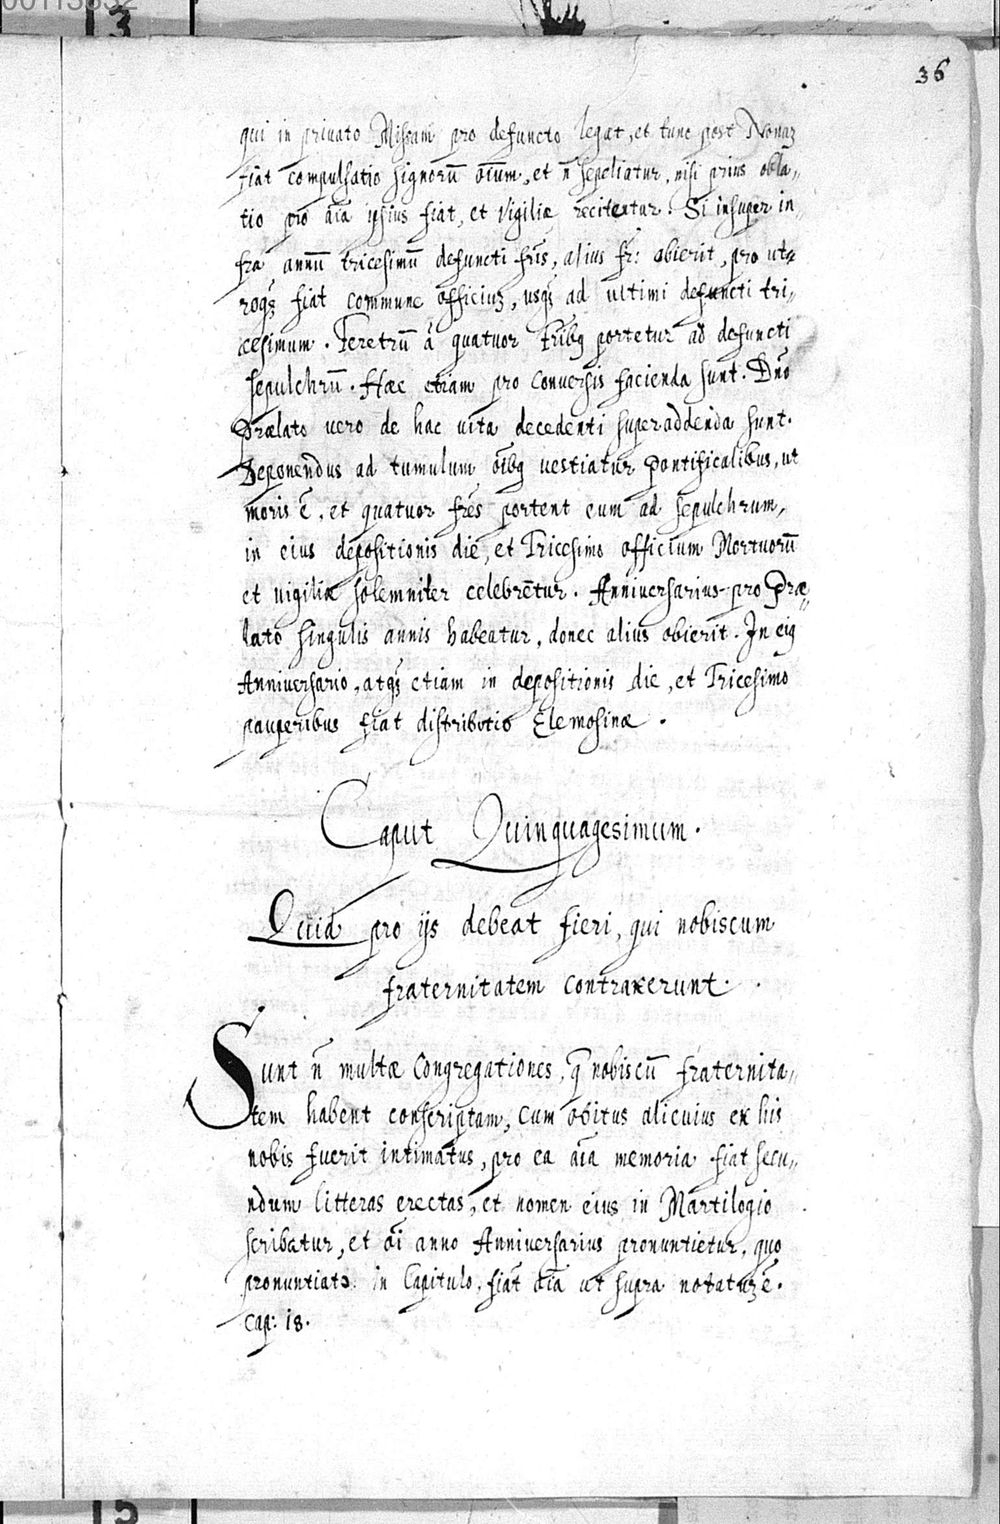 00113832
13
36
qui in priuato Missam pro defuncto legat, et tunc post Nonaʒ
fiat compulsatio signorū oīum, et ñ sepeliatur, nisi prius obla„
tio pro aīa ipsius fiat, et Vigiliæ recitentur. Si insuper in„
fra annū tricesimū defuncti frīs, alius fr: obierit, pro ut„
roqꝫ fiat commune officiuʒ, usqꝫ ad ultimi defuncti tri„
cesimum. Feretrū à quatuor frībꝰ portetur ad defuncti
sepulchrū. Hæc etiam pro Conuersis facienda sunt. Dño
Prælato uero de hac uita decedenti superaddenda sunt.
Deponendus ad tumulum oībꝰ uestiatur Pontificalibus, ut
moris ē, et quatuor frēs portent eum ad sepulchrum,
in eius depositionis die, et Tricesimo officium Mortuorū
et uigiliæ solemniter celebrētur. Anniuersarius pro Præ„
lato singulis annis habeatur, donec alius obierit. In eiꝰ
Anniuersario, atqꝫ etiam in depositionis die, et Tricesimo
pauperibus fiat distributio Elemosinæ.
Caput Quinquagesimum.
Quid pro ijs debeat fieri, qui nobiscum
fraternitatem contraxerunt.
Sunt ñ multæ Congregationes, q̄ nobiscū fraternita„
tem habent conscriptam, cum obitus alicuius ex his
nobis fuerit intimatus, pro ea aīa memoria fiat secu„
ndum litteras erectas, et nomen eius in Martilogio
scribatur, et oī anno Anniuersarius pronuntietur, quo
pronuntiato in Capitulo, fiāt oīa ut supra notatuʒ ē.
Cap: 18.
15